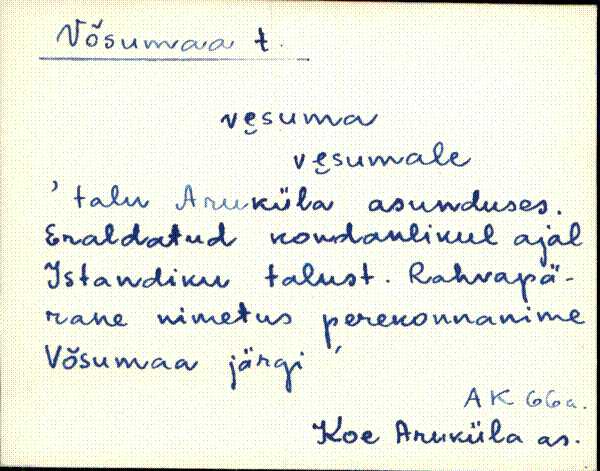 Võsumaa t.
ve̮suma
ve̮sumale
' talu Aruküla asunduses.
Eraldatud kodanlikul ajal
Istandiku talust. Rahvapä-
rane nimetus perekonnanime
Võsumaa järgi '
AK 66a.
Koe Aruküla as.